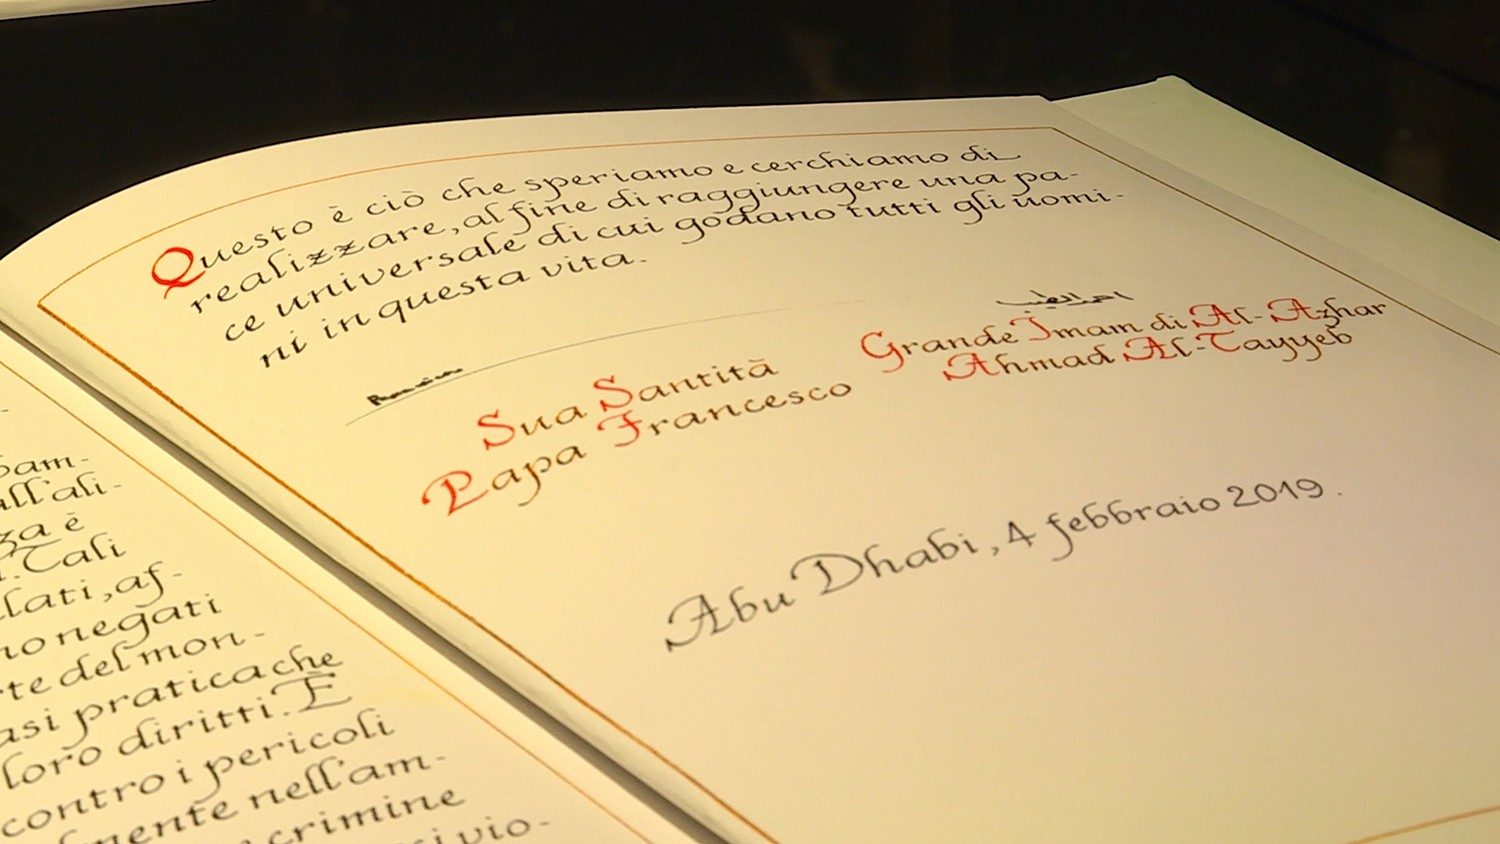 Questo è ciò che speriamo e cerchiamo di
realizzare, al fine di raggiungere una pa-
ce universale di cui godano tutti gli uomi-
ni in questa vita.
احمد الطيب
Sua Santità
Papa Francesco
Grande Imam di Al-Azhar
Ahmad Al-Tayyeb
Abu Dhabi, 4 febbraio 2019.
all'ali-
è
Tali
lati, af-
negati
del mon-
pratica che
loro diritti. È
contro i pericoli
nell'am-
crimine
vio-